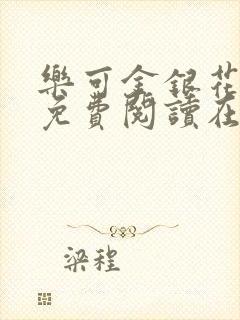 樂可金銀花
免費閱讀在
梁程